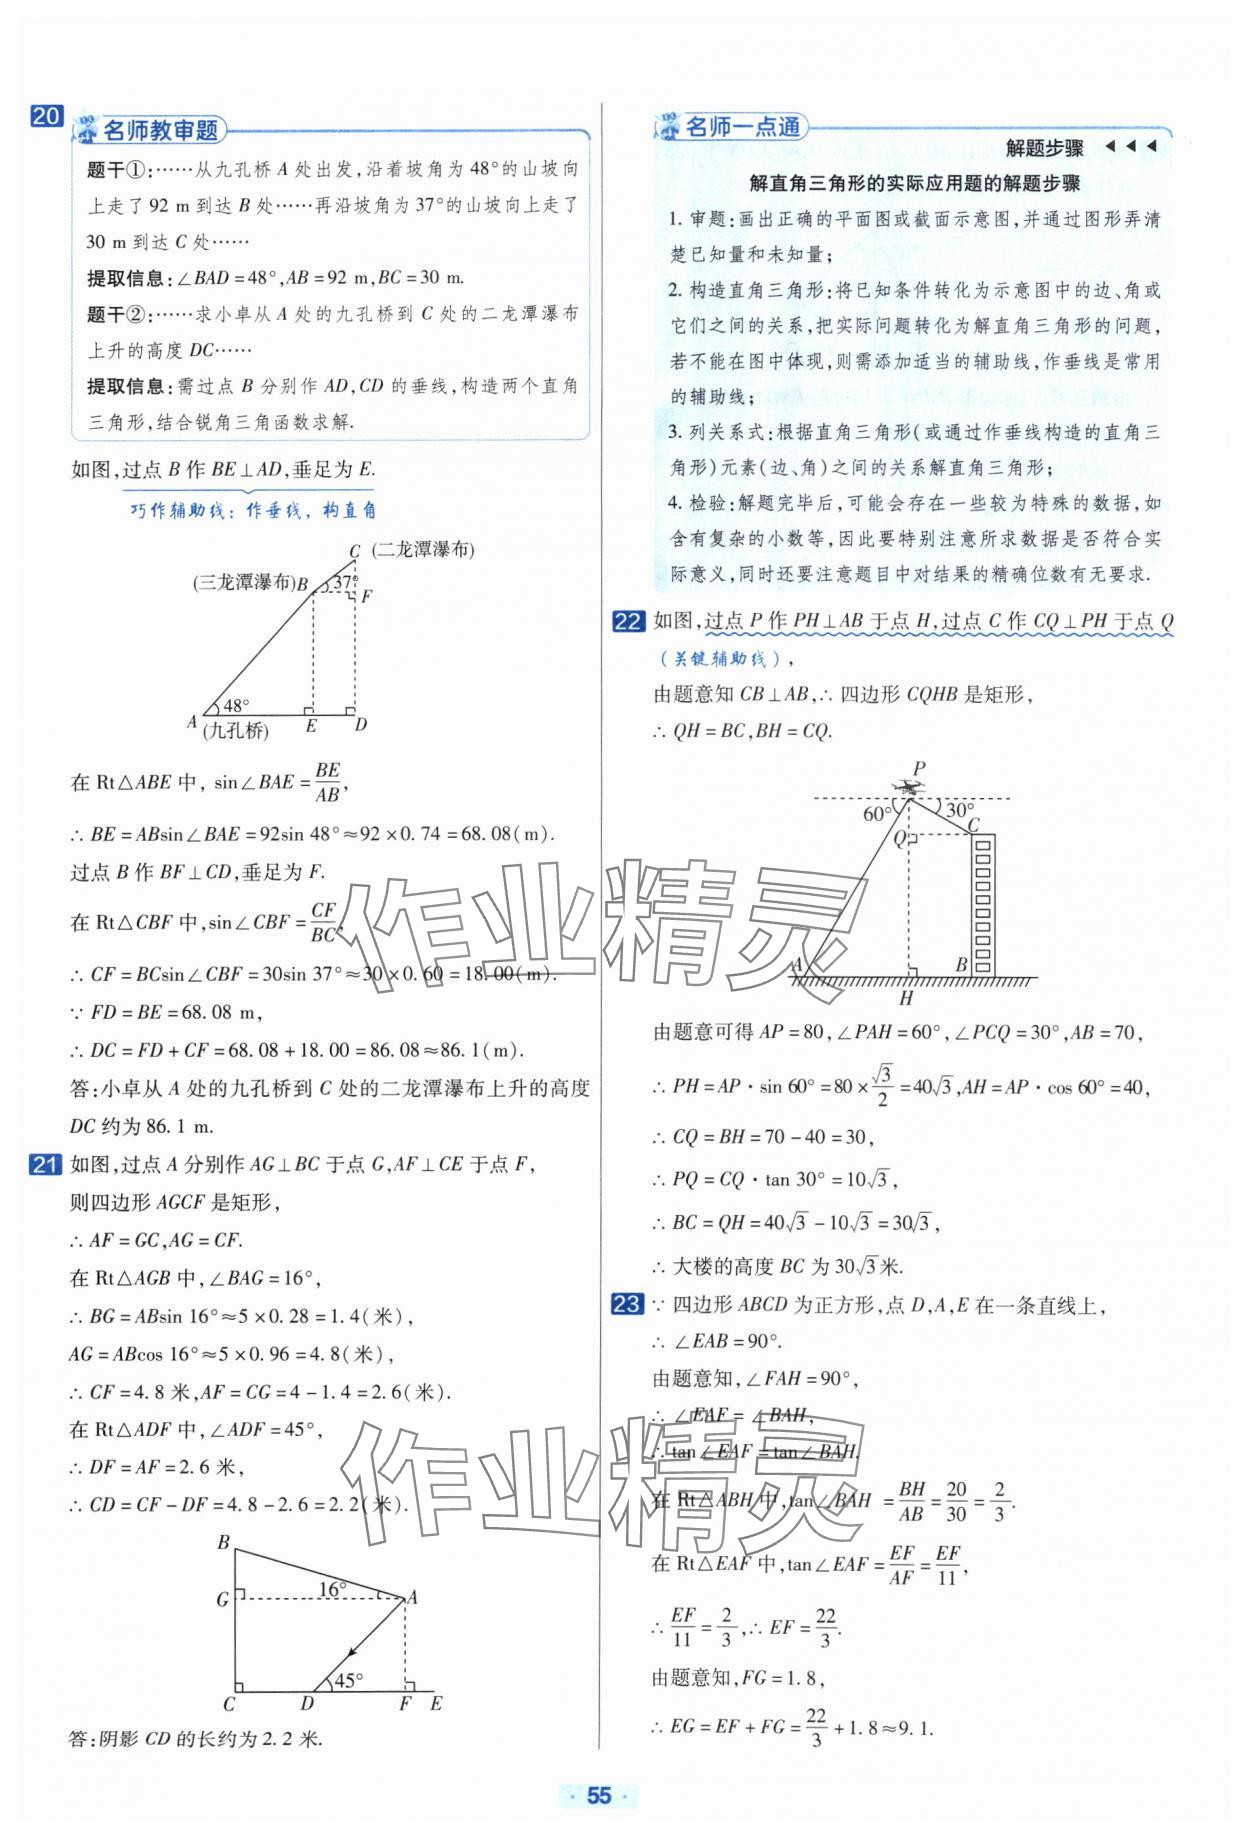 20
名师教审题
题干①:……从九孔桥 A 处出发,沿着坡角为 48°的山坡向
上走了 92 m 到达 B 处……再沿坡角为 37°的山坡向上走了
30 m 到达 C 处……
提取信息:∠BAD=48°,AB=92 m,BC=30 m.
题干②:……求小卓从 A 处的九孔桥到 C 处的二龙潭瀑布
上升的高度 DC……
提取信息:需过点 B 分别作 AD,CD 的垂线,构造两个直角
三角形,结合锐角三角函数求解.
如图,过点 B 作 BE⊥AD,垂足为 E.
巧作辅助线:作垂线,构直角
C (二龙潭瀑布)
(三龙潭瀑布)B
37°
F
48°
A
(九孔桥)
E
D
在 Rt△ABE 中, sin∠BAE=BE/AB,
∴ BE=ABsin∠BAE=92sin 48°≈92×0.74=68.08(m).
过点 B 作 BF⊥CD,垂足为 F.
在 Rt△CBF 中,sin∠CBF=CF/BC,
∴ CF=BCsin∠CBF=30sin 37°≈30×0.60=18.00(m).
∵ FD=BE=68.08 m,
∴ DC=FD+CF=68.08+18.00=86.08≈86.1(m).
答:小卓从 A 处的九孔桥到 C 处的二龙潭瀑布上升的高度
DC 约为 86.1 m.
21 如图,过点 A 分别作 AG⊥BC 于点 G,AF⊥CE 于点 F,
则四边形 AGCF 是矩形,
∴ AF=GC,AG=CF.
在 Rt△AGB 中,∠BAG=16°,
∴ BG=ABsin 16°≈5×0.28=1.4(米),
AG=ABcos 16°≈5×0.96=4.8(米),
∴ CF=4.8 米,AF=CG=4-1.4=2.6(米).
在 Rt△ADF 中,∠ADF=45°,
∴ DF=AF=2.6 米,
∴ CD=CF-DF=4.8-2.6=2.2(米).
B
G
16°
A
45°
C
D
F
E
答:阴影 CD 的长约为 2.2 米.
名师一点通
解题步骤 ◀ ◀ ◀
解直角三角形的实际应用题的解题步骤
1. 审题:画出正确的平面图或截面示意图,并通过图形弄清
楚已知量和未知量;
2. 构造直角三角形:将已知条件转化为示意图中的边、角或
它们之间的关系,把实际问题转化为解直角三角形的问题,
若不能在图中体现,则需添加适当的辅助线,作垂线是常用
的辅助线;
3. 列关系式:根据直角三角形(或通过作垂线构造的直角三
角形)元素(边、角)之间的关系解直角三角形;
4. 检验:解题完毕后,可能会存在一些较为特殊的数据,如
含有复杂的小数等,因此要特别注意所求数据是否符合实
际意义,同时还要注意题目中对结果的精确位数有无要求.
22 如图,过点 P 作 PH⊥AB 于点 H,过点 C 作 CQ⊥PH 于点 Q
(关键辅助线),
由题意知 CB⊥AB,∴ 四边形 CQHB 是矩形,
∴ QH=BC,BH=CQ.
P
60°
30°
C
Q
A
B
H
由题意可得 AP=80,∠PAH=60°,∠PCQ=30°,AB=70,
∴ PH=AP·sin 60°=80×√3/2=40√3,AH=AP·cos 60°=40,
∴ CQ=BH=70-40=30,
∴ PQ=CQ·tan 30°=10√3,
∴ BC=QH=40√3-10√3=30√3,
∴ 大楼的高度 BC 为 30√3米.
23 ∵ 四边形 ABCD 为正方形,点 D,A,E 在一条直线上,
∴ ∠EAB=90°.
由题意知,∠FAH=90°,
∴ ∠EAF=∠BAH,
∴ tan∠EAF=tan∠BAH.
在 Rt△ABH 中,tan∠BAH =BH/AB=20/30=2/3.
在 Rt△EAF 中,tan∠EAF=EF/AF=EF/11,
∴ EF/11=2/3,∴ EF=22/3.
由题意知,FG=1.8,
∴ EG=EF+FG=22/3+1.8≈9.1.
作业精灵
作业精灵
· 55 ·